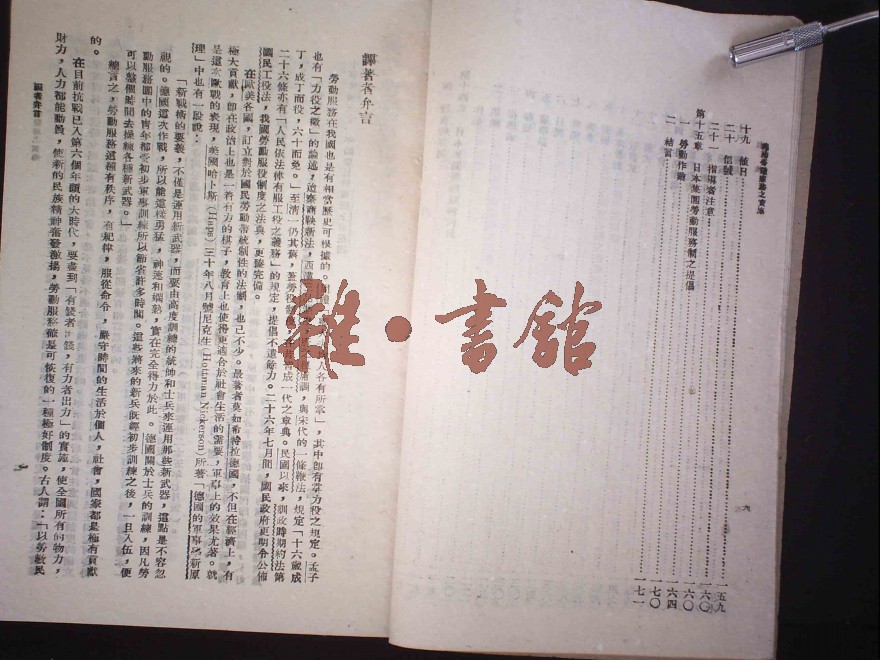 勞動服務之實施
十九 假日 一五九
二十 信號 一六〇
二十一 指導者注意 一六〇
第十五章 日本集團勞動服務制之提倡 一六四
一 勞動作避 一七〇
二 結言 一七一
六
譯著者弁言
勞動服務在我國也是有相當歷史可根據的。人各有所掌」,其中卽有掌力役之規定。孟子
也有「力役之徵」的論述,迨秦商鞅新法,西漢調,與宋代的一條鞭法,規定「十六歲成
丁,成丁而役,六十而免。」至清一仍其舊,著勞役成一代之章典。民國以來,訓政時期約法第
二十六條亦有「人民依法律有服工役之義務」的規定,提倡不遺餘力。二十六年七月間,國民政府更明令公佈
國民工役法,我國勞動服役制度之法典,更臻完備。
在歐美各國,訂立對於國民勞動帶統制性的法制,也已不少。最著者莫如希特拉德國,不但在經濟上,有
極大貢獻,卽在政治上也是一着有力的棋子,教育上也使得更適合於社會生活的需要,軍事上的效果尤著。就
是這次歐戰的表現,美國哈卜斯(Haps)三十年八月號尼克生(Hoffman Nickerson)所著「德國的軍事學新原
理」中也有一段說:
「新戰術的要義,不僅是運用新武器,而要由高度訓練的統帥和士兵來運用那些新武器,這點是不容忽
視的。德國這次作戰,所以能這樣勇猛,神速和嫻熟,實在完全得力於此。德國關於士兵的訓練,因凡勞
動服務團中的青年都受初步軍事訓練所以節省許多時間。這些將來的新兵旣經初步訓練之後,一旦入伍,便
可以整個時間去操練各種新武器。」
總言之,勞動服務這種有秩序,有紀律,服從命令,嚴守時間的生活於個人,社會,國家都是極有貢獻
的。
在目前抗戰已入第六個年頭的大時代,要盡到「有錢者出錢,有力者出力」的實施,使全國所有的物力,
財力,人力都能動員,使新的民族精神奮發激揚,勞動服務確是可恢復的一種極好制度。古人謂:「以勞教民
譯者弁言
一
雜·書館